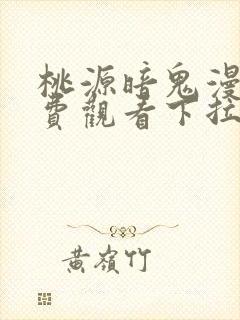 桃源暗鬼漫
費觀看下拉
黃嶺竹